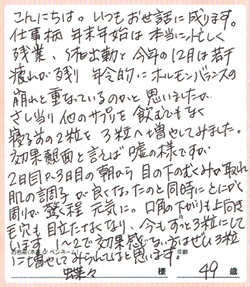 こんにちは。いつもお世話に成ります。
仕事柄 年末年始は本当に忙しく
残業、休日出勤と今年の12月は若干
疲れが残り 年令的にホルモンバランスの
崩れと重なっているのかと思いましたが
さし当り他のサプリを飲むでもなく
寝る前の2粒を3粒へ増やしてみました。
効果覿面と言えば嘘の様ですが
2日目から3日目の朝から目の下のむくみが取れ
肌の調子が良くなったのと同時にとにかく
周りが驚く程 元気に。口角の下がりも上向き
毛穴も目立たなくなり、今もずっと3粒にして
います。1〜2で効果感じない方はぜひ3粒
に増やしてみられてはと思います。
蝶々 様 49 歳